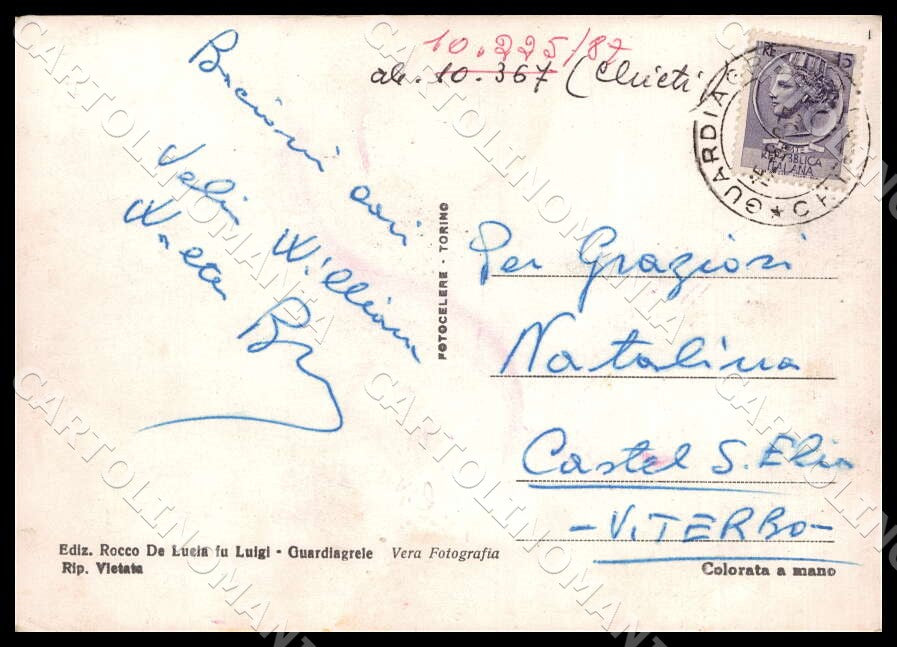 10.225/87
ab. 10.367 (Chieti)
Bacioni cari
Velia Williams
Walter
LIRE 15
POSTE
REPUBBLICA
ITALIANA
GUARDIAGRELE
CH
FOTOCELERE - TORINO
Per Graziosi
Natalina
Castel S. Elia
- VITERBO -
Ediz. Rocco De Lucia fu Luigi - Guardiagrele Vera Fotografia
Rip. Vietata
Colorata a mano
CARTOLINOMANIA